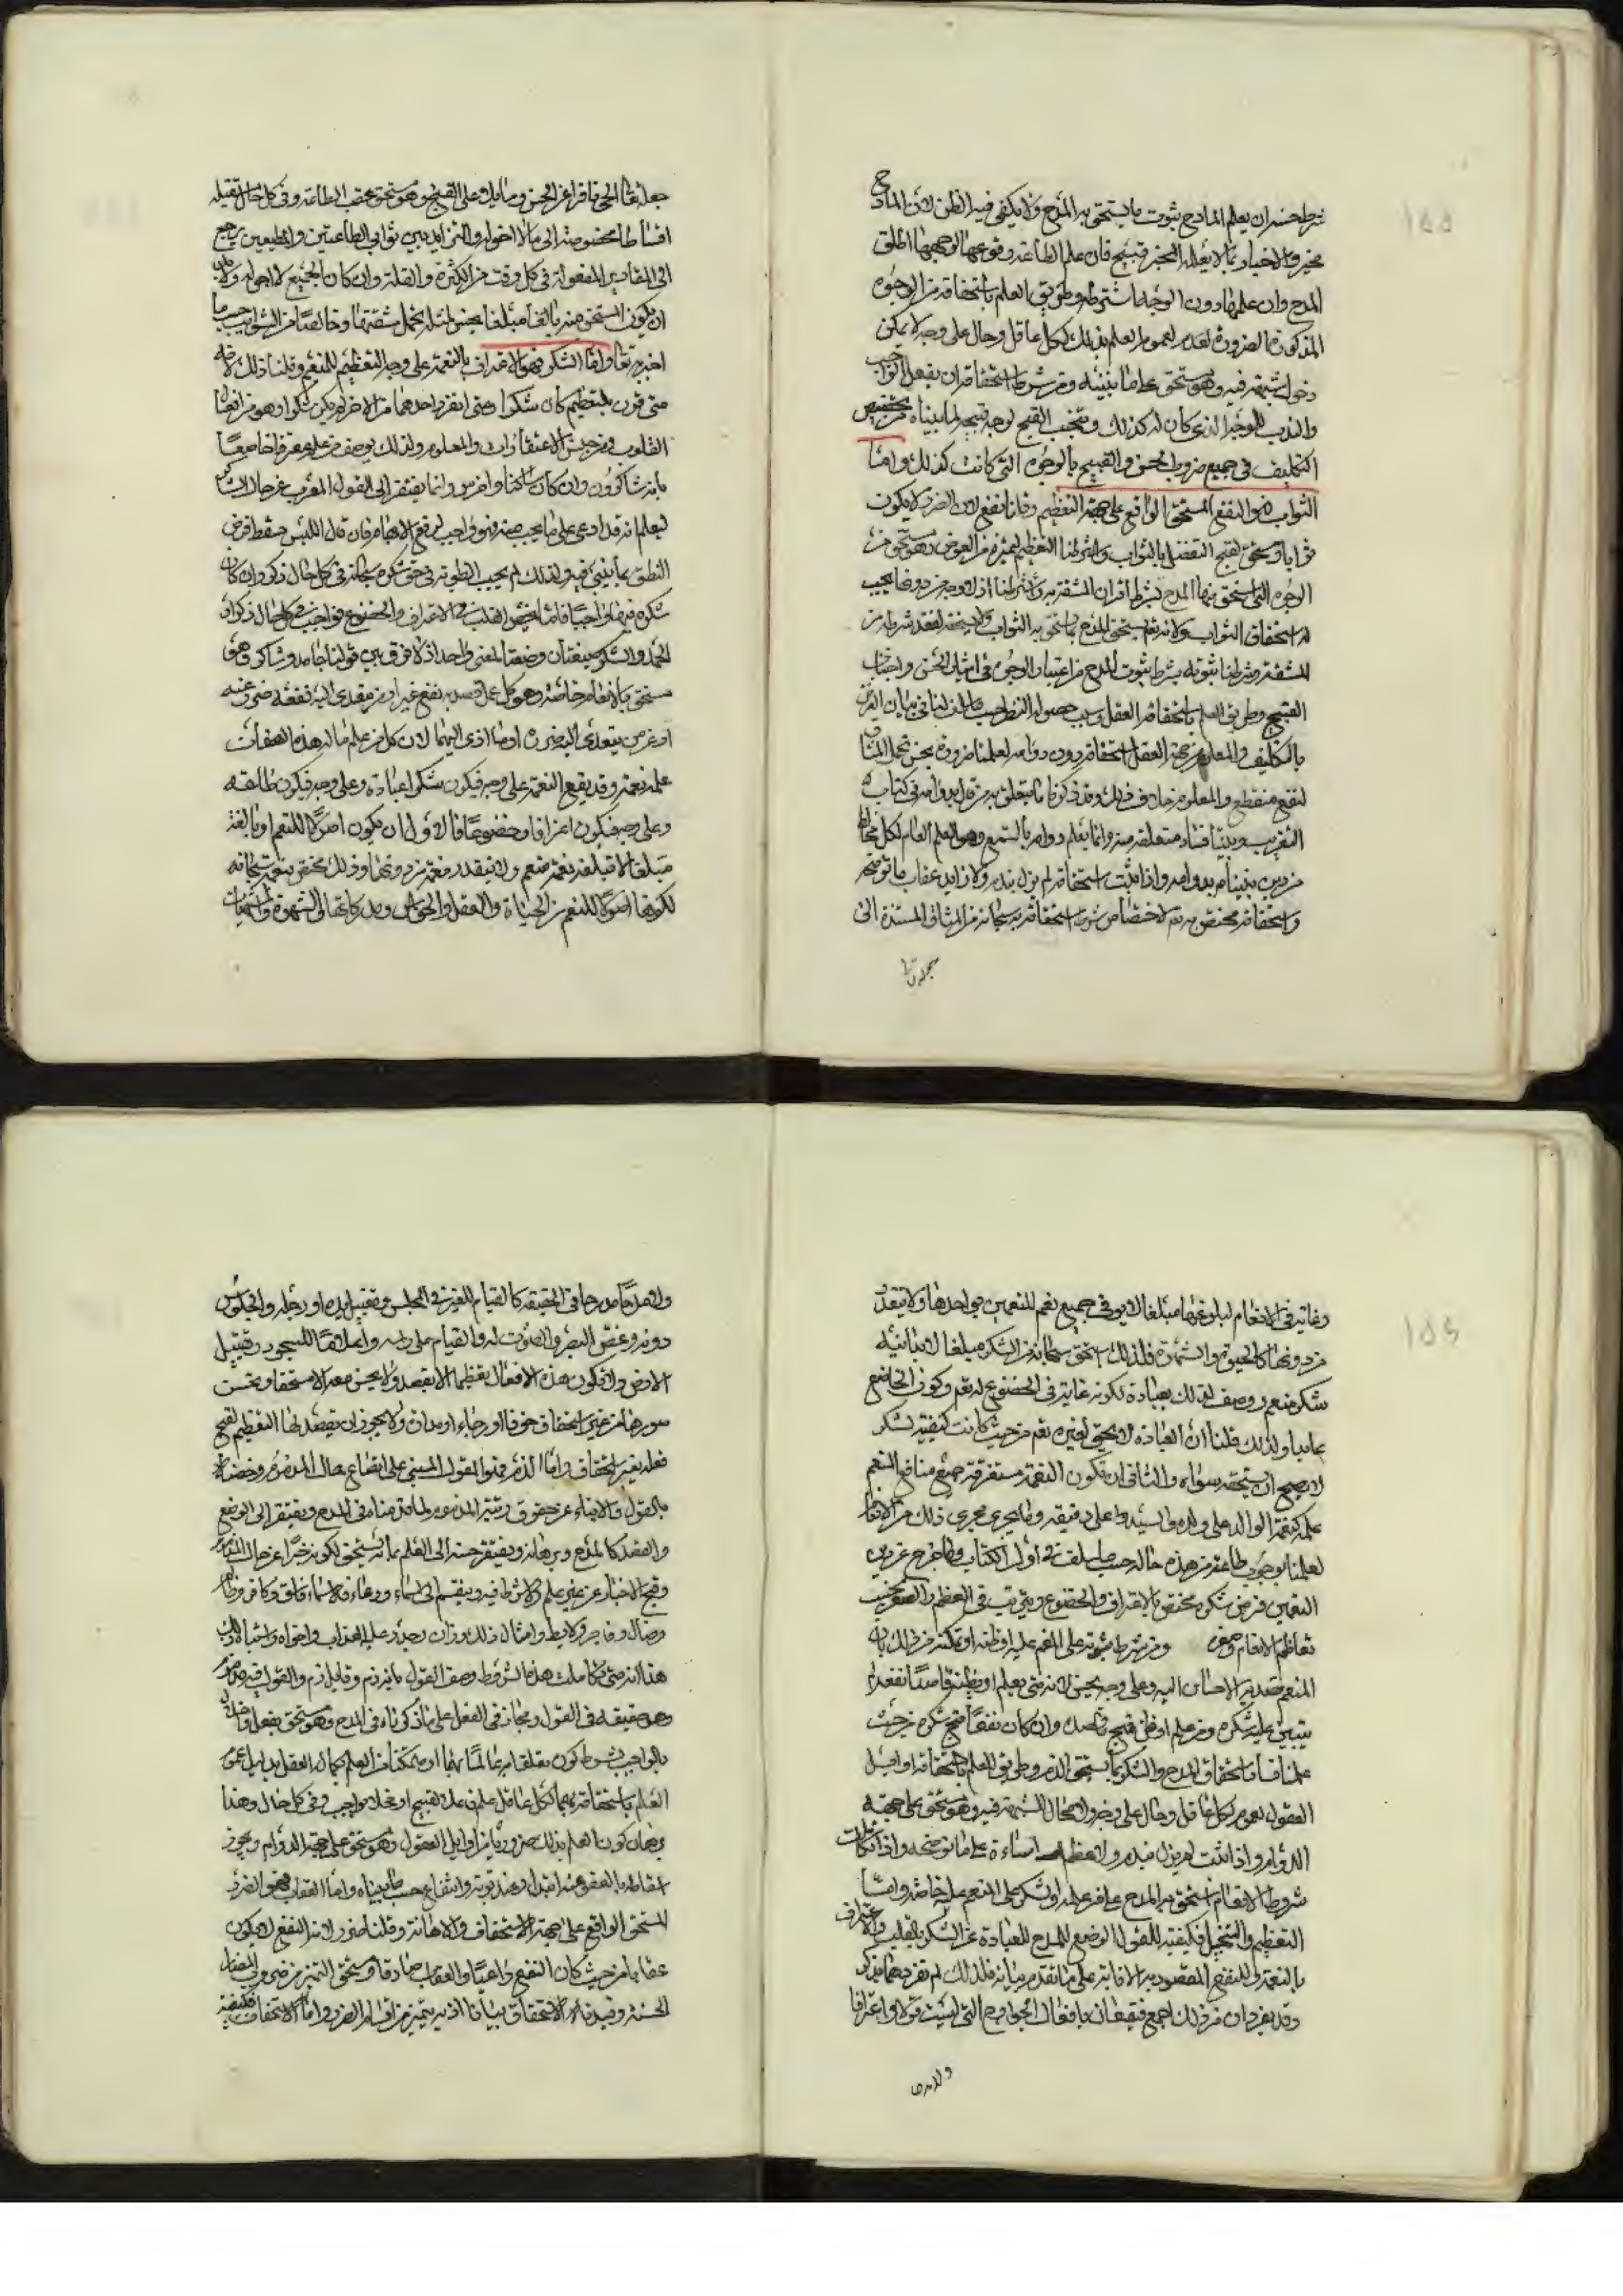 شرط حسنه ان يعلم المادح ثبوت ما يستحق به المدح ولا يكفي فيه الظن لان المادح
مخبر والاخبار بما لا يعلمه المخبر قبيح فان علم الطاعة وقوعها لوجهها اطلق
المدح وان علمها دون الوجه اشترطه وطريق العلم باستحقاقه من الوجوه
المذكورة الضرورة لعموم العلم بذلك لكل عاقل وحال على وجه لا يمكن
دخول شبهة فيه وهو مستحق على ما نبينه ومن شرط استحقاقه ان يفعل الواجب
والندب للوجه الذي كان له كذلك ويجتنب القبيح لوجه قبحه لما بيناه من تخصيص
التكليف في جميع ضروب الحسن والقبيح بالوجوه التي كانت كذلك واما
الثواب فهو النفع المستحق الواقع على جهة التعظيم وقلنا نفع لان الضرر لا يكون
ثوابا ومستحق لقبح التفضل بالثواب وشرطنا التعظيم لتميزه من العوض وهو مستحق من
الوجوه التي يستحق منها المدح بشرط اقتران المشقة به
له استحقاق الثواب ولانه تعالى يستحق المدح بما يستحق به الثواب ولا يستحقه لفقد شرطه من
المشقة وشرطنا ثبوته بشرط ثبوت المدح من اعتبار الوجوه في ايثار الحسن واجتناب
القبيح وطريق العلم باستحقاقه العقل وسبب حصوله النظر حسب ما سلف لنا في بيان الغرض
بالتكليف والمعلوم من جهة العقل استحقاقه دون دوامه لعلمنا ضرورة بحسن تحمل المشاق
لنفع منقطع والمعلوم خلاف ذلك وقد ذكرنا ما يتعلق به من قال بدوامه في كتاب
التقريب وبينا فساد متعلقه منه وانما يعلم دوامه بالسمع وهو العلم العام لكل مخالط
من دين نبينا بدوامه واذا ثبت استحقاقه لم يزل بندم ولا زايد عقاب ما نوضحه
واستحقاقه مختص به تعالى لاختصاص شرط استحقاقه به سبحانه من المشاق المستندة الى
جعله تعالى الحي نافرا عن الحسن ومايلا على القبيح وهو مستحق عقيب الطاعة وفي كل حال تقتيله
اقساطا مخصوصة الى ما لا اخر له والتمييز بين ثوابي الطاعتين والمطيعين يرجع
الى المقادير المفعولة في كل وقت من الكثرة والقلة وان كان الجميع لا اخر له ولا بد
ان يكون المستحق منه بالغا مبلغا يحسن لمثله تحمل مشقتها وخالصا من الشوايب حسب ما
اخبر به تعالى واما الشكر فهو الاعتراف بالنعمة على وجه التعظيم للمنعم وقلنا ذلك لانه
متى قرن بالتعظيم كان شكرا ومتى انفرد احدهما من الاخر لم يكن شكرا وهو من افعال
القلوب ومن جنس الاعتقادات والمعلوم ولذلك يوصف من علم معترفا خاضعا
بانه شاكر وان كان ساكتا واخرس وانما يفتقر الى القول المعرب عن حال الشاكر
ليعلم انه قد ادى ما يجب منه فهو واجب لرفع الابهام فان قال اللبس سقط فرض
النطق ولذلك لم يجب النطق به في حق شكره سبحانه في كل حال ذكر وان كان
شكره فيها واجبا فاما ما يخص القلب من الاعتراف والخضوع فواجب في كل حال ذكر اذ
الحمد والشكر يفيدان وضعا لمعنى واحد اذ لا فرق بين قولنا حامد وشاكر وهو
مستحق بالانعام خاصة وهو كل عمل قصد به نفع غير او من يتعدى اليه نفعه ضر عنه
او عن من يتعدى اليه ضره او ما ادى اليهما لان كل من علم ما له هذه الصفات
علمه نعمة وقد يقع النعمة على وجه فيكون شكرها عبادة وعلى وجه فيكون طاعة
وعلى وجه فيكون اعترافا وخضوعا فالاول ان يكون اصولا للنعم او بالغة
مبلغا لا تبلغه نعمة منعم ولا يتقدر نعمة من دونها وذلك مختص بنعمه سبحانه
لكونها اصولا للنعم من الحياة والعقل والحواس ومدركاتها الى الشهوة والمشتهيات
وغاية في الانعام لبلوغها مبلغا لا يوفي جميع نعم المنعمين بواحدها ولا يتقدر
من دونها كالحيوة والشهوة فلذلك استحق سبحانه من الشكر مبلغا لا يدانيه
شكر منعم ووصف لذلك بعبادة لكونه غاية في الخضوع له تعالى وكون الخاضع
عابدا ولذلك قلنا ان العبادة لا يحق لغيره تعالى من حيث كانت كيفية لشكر
لا يصح ان يستحقه سواه والثاني ان تكون النعمة مستغرقة جميع منافع المنعم
عليه كنعمة الوالد على ولده والسيد على رقيقه وما يجري مجرى ذلك من الانعام
لعلمنا بوجوب طاعة من هذه حاله حسب ما سلف في اول الكتاب وما خرج عن هذين
النعمتين فرض شكره مختص بالاعتراف والخضوع ويترتب في العظم والصغر بحسب
تعاظم الانعام وصغره ومن شرط ثبوته على المنعم عليه او ظنه او تمكنه من ذلك بان
المنعم قصد به الاحسان اليه وعلى وجه يحسن لانه متى يعلم او يظنه قاصدا نفعه لم
يتعين عليه شكره ومن علم او ظن قبح قصده وان كان نفعا قبح شكره من حيث
علمنا فساد استحقاق المدح والشكر بما يستحق الذم وطريق العلم باستحقاقه اوايل
العقول لعمومه لكل عاقل وحال على وجه لا مجال للشبهة فيه وهو مستحق على جهة
الدوام واذا ثبت لم يزل بندم ولا بعظم اساءة على ما نوضحه واذا تكاملت
شروط الانعام استحق به المدح على من علمه والشكر على المنعم عليه خاصة واما
التعظيم والتبجيل فكيفية للقول الموضوع للمدح للعبادة عن الشكر بالقلب والاعتراف
بالنعمة وللنفع المقصود به الاثابة على ما تقدم بيانه فلذلك لم نفردهما بذكر
وقد يفردان من ذلك اجمع فيقعان بافعال الجوارح التي ليست قولا ولا اعترافا
ولا مدحا من جاني الحقيقة كالقيام للغير في المجلس وتقبيل يده او رجله والجلوس
دونه وغض البصر والصوت له والقيام على راسه واسلافا للسجود وتقبيل
الارض ولا تكون هذه الافعال تعظيما الا بقصد ولا يحسن معه الا مستحقا ويحسن
صورها من غير استحقاق خوفا او رجاء او مداراة ولا يجوز ان يقصد بها التعظيم لقبح
فعله بغير استحقاق واما الذم فهو القول المبني على اتضاع حال المذموم وخفضا
بالقول والانباء عن حقوق رتبة المذموم لما قدمناه في المدح ويفتقر الى الوضع
والقصد كالمدح وبرهانه ويفتقر حسنه الى العلم بما له يستحق لكونه خبرا عن حال المذموم
وقبح الاخبار عن غير علم كلا شرط فيه وينقسم الى اسماء ودعاء فالاسماء فاسق وكافر وظالم
وضال وفاجر ولايط وامثال ذلك وزان وجدد عليه العذاب واخزاه واشباه ذلك
هذا انه متى تكاملت هذه الشروط وصف القول بانه ذم وقايله ذام والمقول فيه مذموم
وهو حقيقة في القول ومجاز في الفعل على ما ذكرناه في المدح وهو مستحق بفعل واخلال
بالواجب بشرط كون متعلقاه عالما بهما او متمكنا من العلم بكمال العقل بدليل عموم
العلم باستحقاقه بهما لكل عاقل علم من فعل القبيح او اخلا بواجب وفي كل حال وهذا
برهان كون العلم بذلك ضروريا من اوايل العقول وهو مستحق على جهة الدوام ويجوز
اسقاطه بالعفو عنه ابتدا وعند توبة وشفاعة حسب ما بيناه واما العقاب فهو الضرر
المستحق الواقع على جهة الاستخفاف والاهانة وقلنا ضرر لانه النفع لا يكون
عقابا من حيث كان النفع داعيا والعقاب صادقا ومستحق لتميز من ضروب المضار
الحسنة وقيدناه بالاستخفاف بيانا اذ به يتميز من اقسام الضرر واما الاستخفاف فكيفية